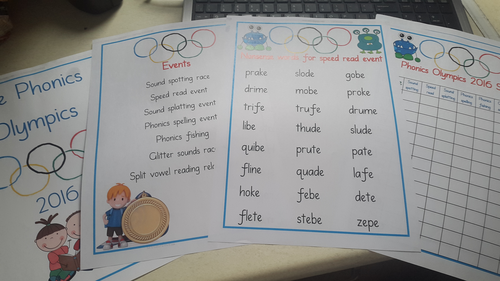 e Phonics
Olympics
2016
Events
Sound spotting race
Speed read event
Sound splatting event
Phonics spelling event
Phonics fishing
Glitter sounds rac
Split vowel reading rel
for speed read event
prake slode gobe
drime mobe proke
trife trufe drume
libe thude slude
quibe prute pate
fline quade lafe
hoke febe dete
flete stebe zepe
Phonics Olympics 2016 S